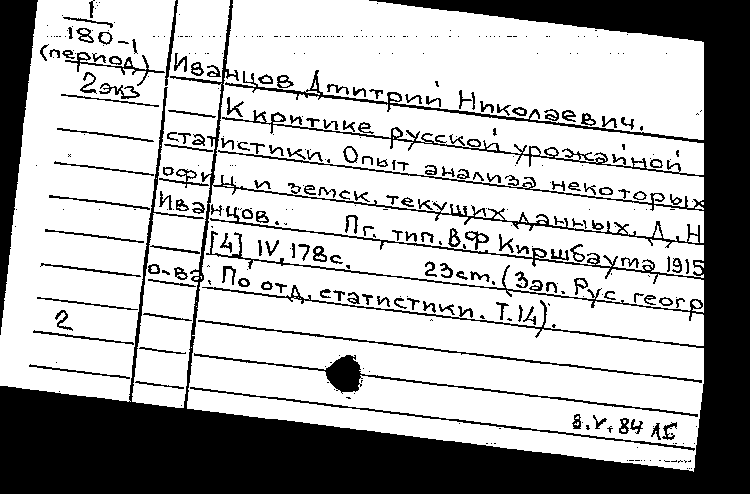 1
180-1
(период)
2экз
Иванцов, Дмитрий Николаевич.
К критике русской урожайной
статистики. Опыт анализа некоторых
офиц. и земск. текущих данных. Д. Н
Иванцов. Пг., тип. В.Ф. Киршбаума, 1915
[4], IV, 178с. 23cm. (Зап. Рус. геогр
о-ва. По отд. статистики. Т.14).
2
8.V.84 ЛБ